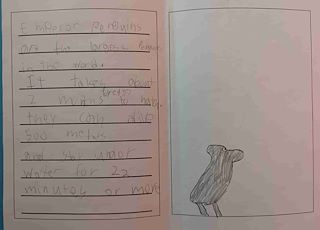 Emperor Penguins
are the largest
in the world.
It takes about
2 months for eggs to hatch.
They can dive
500 meters
and stay under
water for 22
minutes or more